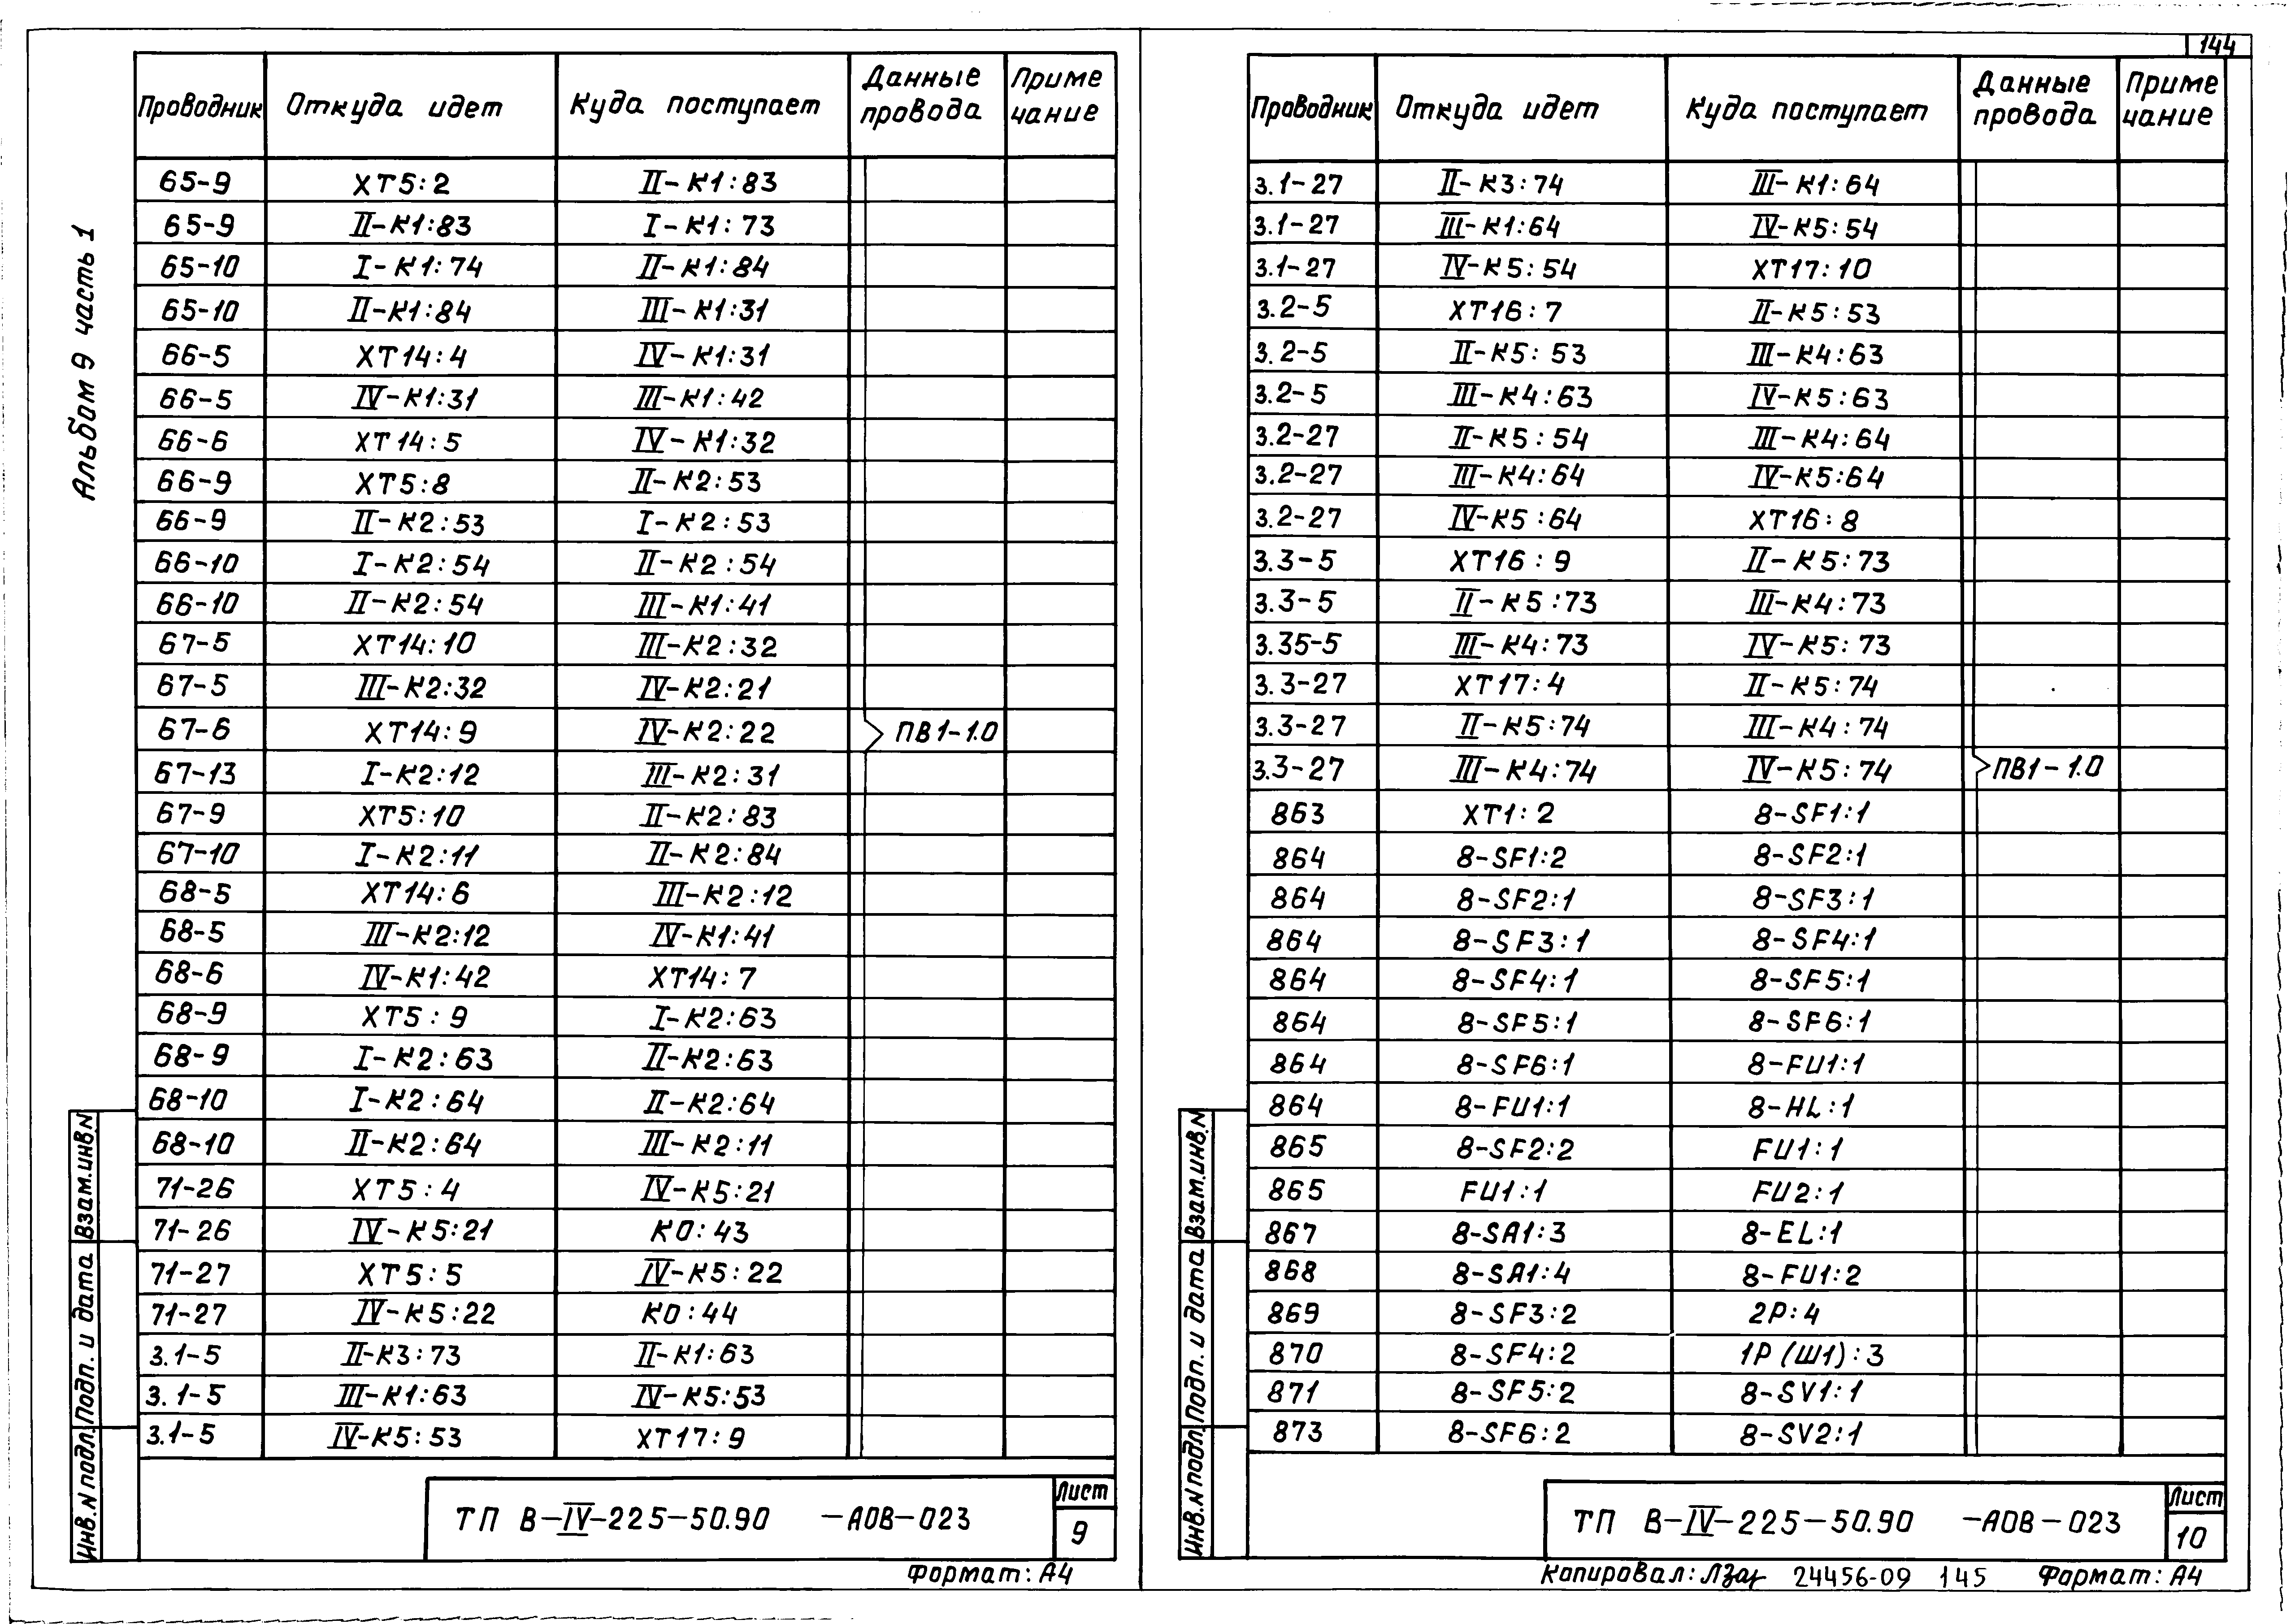 144
Альбом 9 часть 1
Проводник Откуда идет Куда поступает Данные провода Приме чание
65-9 XT5:2 II-К1:83
65-9 II-К1:83 I-К1:73
65-10 I-К1:74 II-К1:84
65-10 II-К1:84 III-К1:31
66-5 XT14:4 IV-К1:31
66-5 IV-К1:31 III-К1:42
66-6 XT14:5 IV-К1:32
66-9 XT5:8 II-К2:53
66-9 II-К2:53 I-К2:53
66-10 I-К2:54 II-К2:54
66-10 II-К2:54 III-К1:41
67-5 XT14:10 III-К2:32
67-5 III-К2:32 IV-К2:21
67-6 XT14:9 IV-К2:22 ПВ1-1.0
67-13 I-К2:12 III-К2:31
67-9 XT5:10 II-К2:83
67-10 I-К2:11 II-К2:84
68-5 XT14:6 III-К2:12
68-5 III-К2:12 IV-К1:41
68-6 IV-К1:42 XT14:7
68-9 XT5:9 I-К2:63
68-9 I-К2:63 II-К2:63
68-10 I-К2:64 II-К2:64
68-10 II-К2:64 III-К2:11
71-26 XT5:4 IV-К5:21
71-26 IV-К5:21 К0:43
71-27 XT5:5 IV-К5:22
71-27 IV-К5:22 К0:44
3.1-5 II-К3:73 II-К1:63
3.1-5 III-К1:63 IV-К5:53
3.1-5 IV-К5:53 XT17:9
Взам.инв.N
Подп. и дата
Инв.N подл.
ТП В-IV-225-50.90 -АОВ-023
Лист
9
Формат: А4
Проводник Откуда идет Куда поступает Данные провода Приме чание
3.1-27 II-К3:74 III-К1:64
3.1-27 III-К1:64 IV-К5:54
3.1-27 IV-К5:54 XT17:10
3.2-5 XT16:7 II-К5:53
3.2-5 II-К5:53 III-К4:63
3.2-5 III-К4:63 IV-К5:63
3.2-27 II-К5:54 III-К4:64
3.2-27 III-К4:64 IV-К5:64
3.2-27 IV-К5:64 XT16:8
3.3-5 XT16:9 II-К5:73
3.3-5 II-К5:73 III-К4:73
3.35-5 III-К4:73 IV-К5:73
3.3-27 XT17:4 II-К5:74
3.3-27 II-К5:74 III-К4:74
3.3-27 III-К4:74 IV-К5:74 ПВ1-1.0
863 XT1:2 8-SF1:1
864 8-SF1:2 8-SF2:1
864 8-SF2:1 8-SF3:1
864 8-SF3:1 8-SF4:1
864 8-SF4:1 8-SF5:1
864 8-SF5:1 8-SF6:1
864 8-SF6:1 8-FU1:1
864 8-FU1:1 8-HL:1
865 8-SF2:2 FU1:1
865 FU1:1 FU2:1
867 8-SA1:3 8-EL:1
868 8-SA1:4 8-FU1:2
869 8-SF3:2 2P:4
870 8-SF4:2 1P(Ш1):3
871 8-SF5:2 8-SV1:1
873 8-SF6:2 8-SV2:1
Взам.инв.N
Подп. и дата
Инв.N подл.
ТП В-IV-225-50.90 -АОВ-023
Лист
10
Копировал: 24456-09 145 Формат: А4